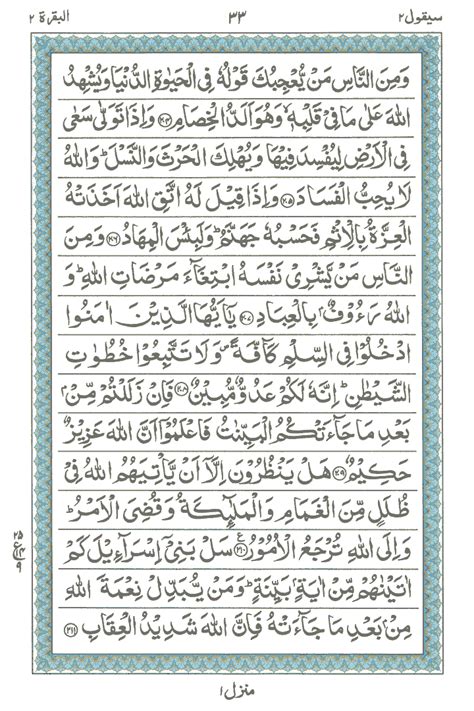 سيقول ٢ ٣٣ البقرة ٢
وَمِنَ النَّاسِ مَنْ يُّعْجِبُكَ قَوْلُهٗ فِى الْحَيٰوةِ الدُّنْيَا وَيُشْهِدُ
اللّٰهَ عَلٰى مَا فِىْ قَلْبِهٖ ۙ وَهُوَ اَلَدُّ الْخِصَامِ ﴿۲۰۴﴾ وَاِذَا تَوَلّٰى سَعٰى
فِى الْاَرْضِ لِيُفْسِدَ فِيْهَا وَيُهْلِكَ الْحَرْثَ وَالنَّسْلَ ؕ وَاللّٰهُ
لَا يُحِبُّ الْفَسَادَ ﴿۲۰۵﴾ وَاِذَا قِيْلَ لَهُ اتَّقِ اللّٰهَ اَخَذَتْهُ
الْعِزَّةُ بِالْاِثْمِ فَحَسْبُهٗ جَهَنَّمُ ؕ وَلَبِئْسَ الْمِهَادُ ﴿۲۰۶﴾ وَمِنَ
النَّاسِ مَنْ يَّشْرِىْ نَفْسَهُ ابْتِغَآءَ مَرْضَاتِ اللّٰهِ ؕ وَ
اللّٰهُ رَءُوْفٌۢ بِالْعِبَادِ ﴿۲۰۷﴾ يٰٓاَيُّهَا الَّذِيْنَ اٰمَنُوا
ادْخُلُوْا فِى السِّلْمِ كَآفَّةً ۪ وَلَا تَتَّبِعُوْا خُطُوٰتِ
الشَّيْطٰنِ ؕ اِنَّهٗ لَكُمْ عَدُوٌّ مُّبِيْنٌ ﴿۲۰۸﴾ فَاِنْ زَلَلْتُمْ مِّنْۢ
بَعْدِ مَا جَآءَتْكُمُ الْبَيِّنٰتُ فَاعْلَمُوْٓا اَنَّ اللّٰهَ عَزِيْزٌ
حَكِيْمٌ ﴿۲۰۹﴾ هَلْ يَنْظُرُوْنَ اِلَّاۤ اَنْ يَّاْتِيَهُمُ اللّٰهُ فِىْ
ظُلَلٍ مِّنَ الْغَمَامِ وَالْمَلٰٓئِكَةُ وَقُضِىَ الْاَمْرُ ؕ
وَاِلَى اللّٰهِ تُرْجَعُ الْاُمُوْرُ ﴿۲۱۰﴾ سَلْ بَنِىْٓ اِسْرَآءِيْلَ كَمْ
اٰتَيْنٰهُمْ مِّنْ اٰيَةٍۢ بَيِّنَةٍ ؕ وَمَنْ يُّبَدِّلْ نِعْمَةَ اللّٰهِ
مِنْۢ بَعْدِ مَا جَآءَتْهُ فَاِنَّ اللّٰهَ شَدِيْدُ الْعِقَابِ ﴿۲۱۱﴾
۲۵
ع
۱۴
۹
منزل ۱